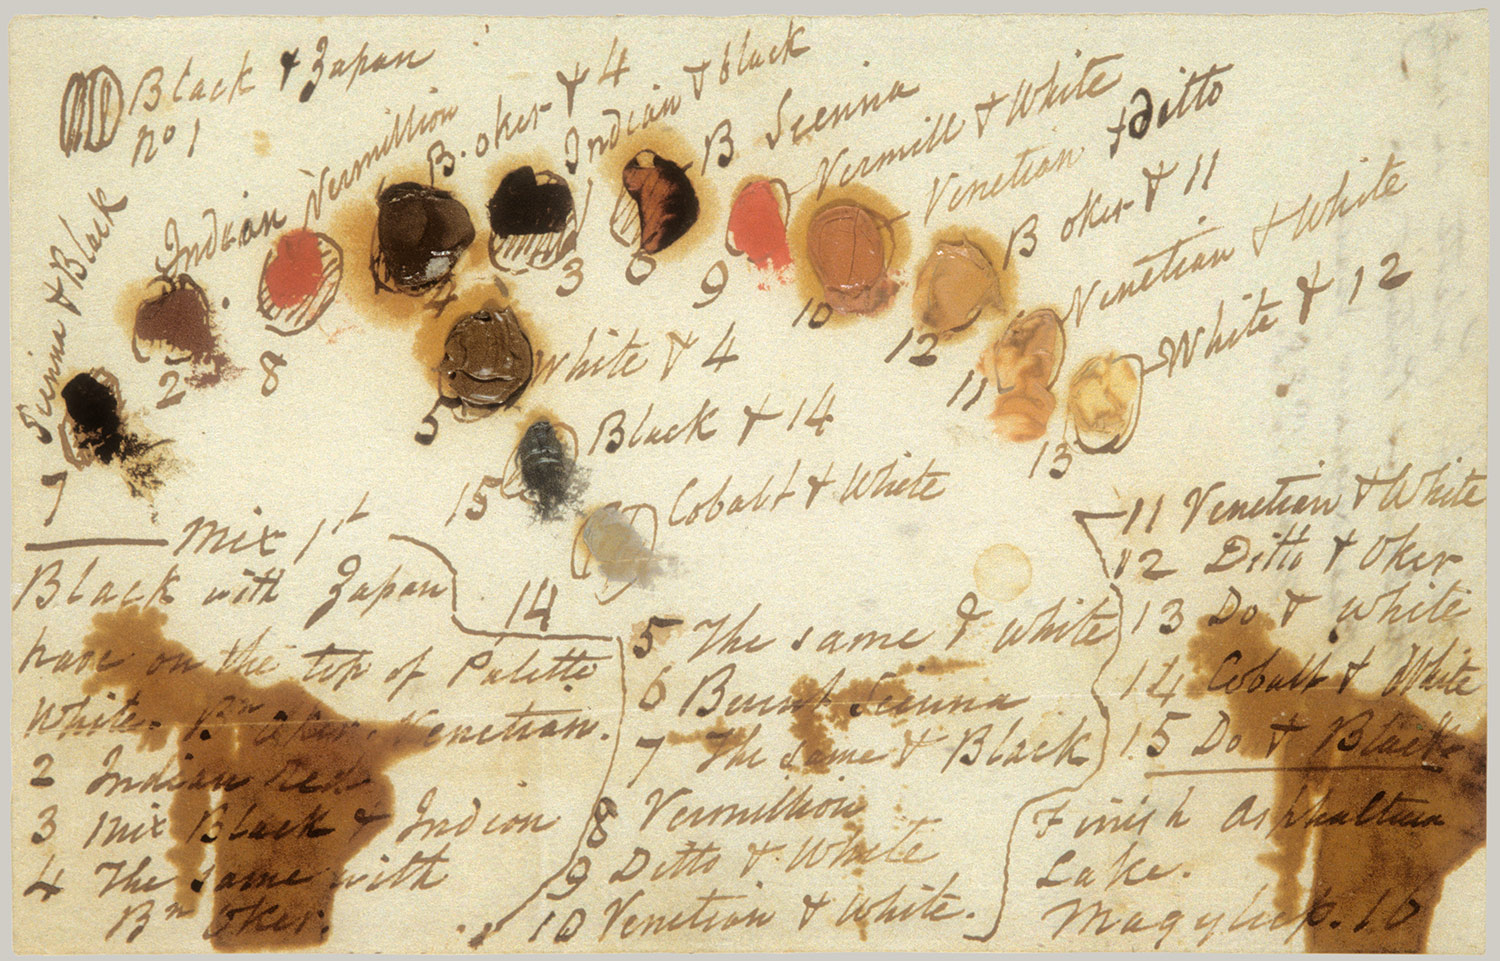 Black & Japan
no 1
Siena & Black
7
Indian
2
Vermillion
8
B. oker & 4
4
Indian & black
3
B Seenna
6
Vermill & White
9
Venetian & ditto
10
B oker & 11
12
Venetian & White
11
White & 12
13
White & 4
5
Black & 14
15
Cobalt & White
14
Mix 1st
Black with Japan
have on the top of Palette
White. Bn oker. Venetian.
2 Indian Red
3 mix Black & Indion
4 The same with
Bn Oker.
5 The same & white
6 Burnt Seinna
7 The same & Black
8 Vermillion
9 Ditto & White
10 Venetian & White.
11 Venetian & White
12 Ditto & Oker
13 Do & White
14 Cobalt & White
15 Do & Black
Finish Asphaltum
Lake.
Magylup. 16